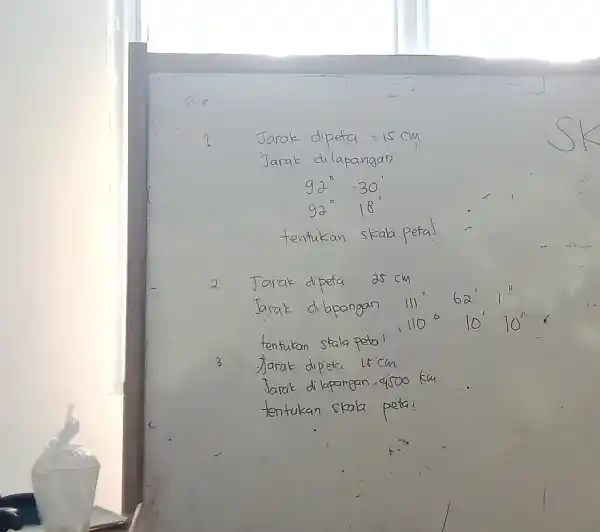 SK
1 Jarak dipeta = 15 cm
Jarak dilapangan
92° 30'
92° 18'
tentukan skala peta!
2 Jarak dipeta 25 cm
Jarak dilapangan 111° 62' 1"
110° 10' 10"
tentukan skala peta!
3. Jarak dipeta 15 cm
Jarak dilapangan = 4500 km
tentukan skala peta!